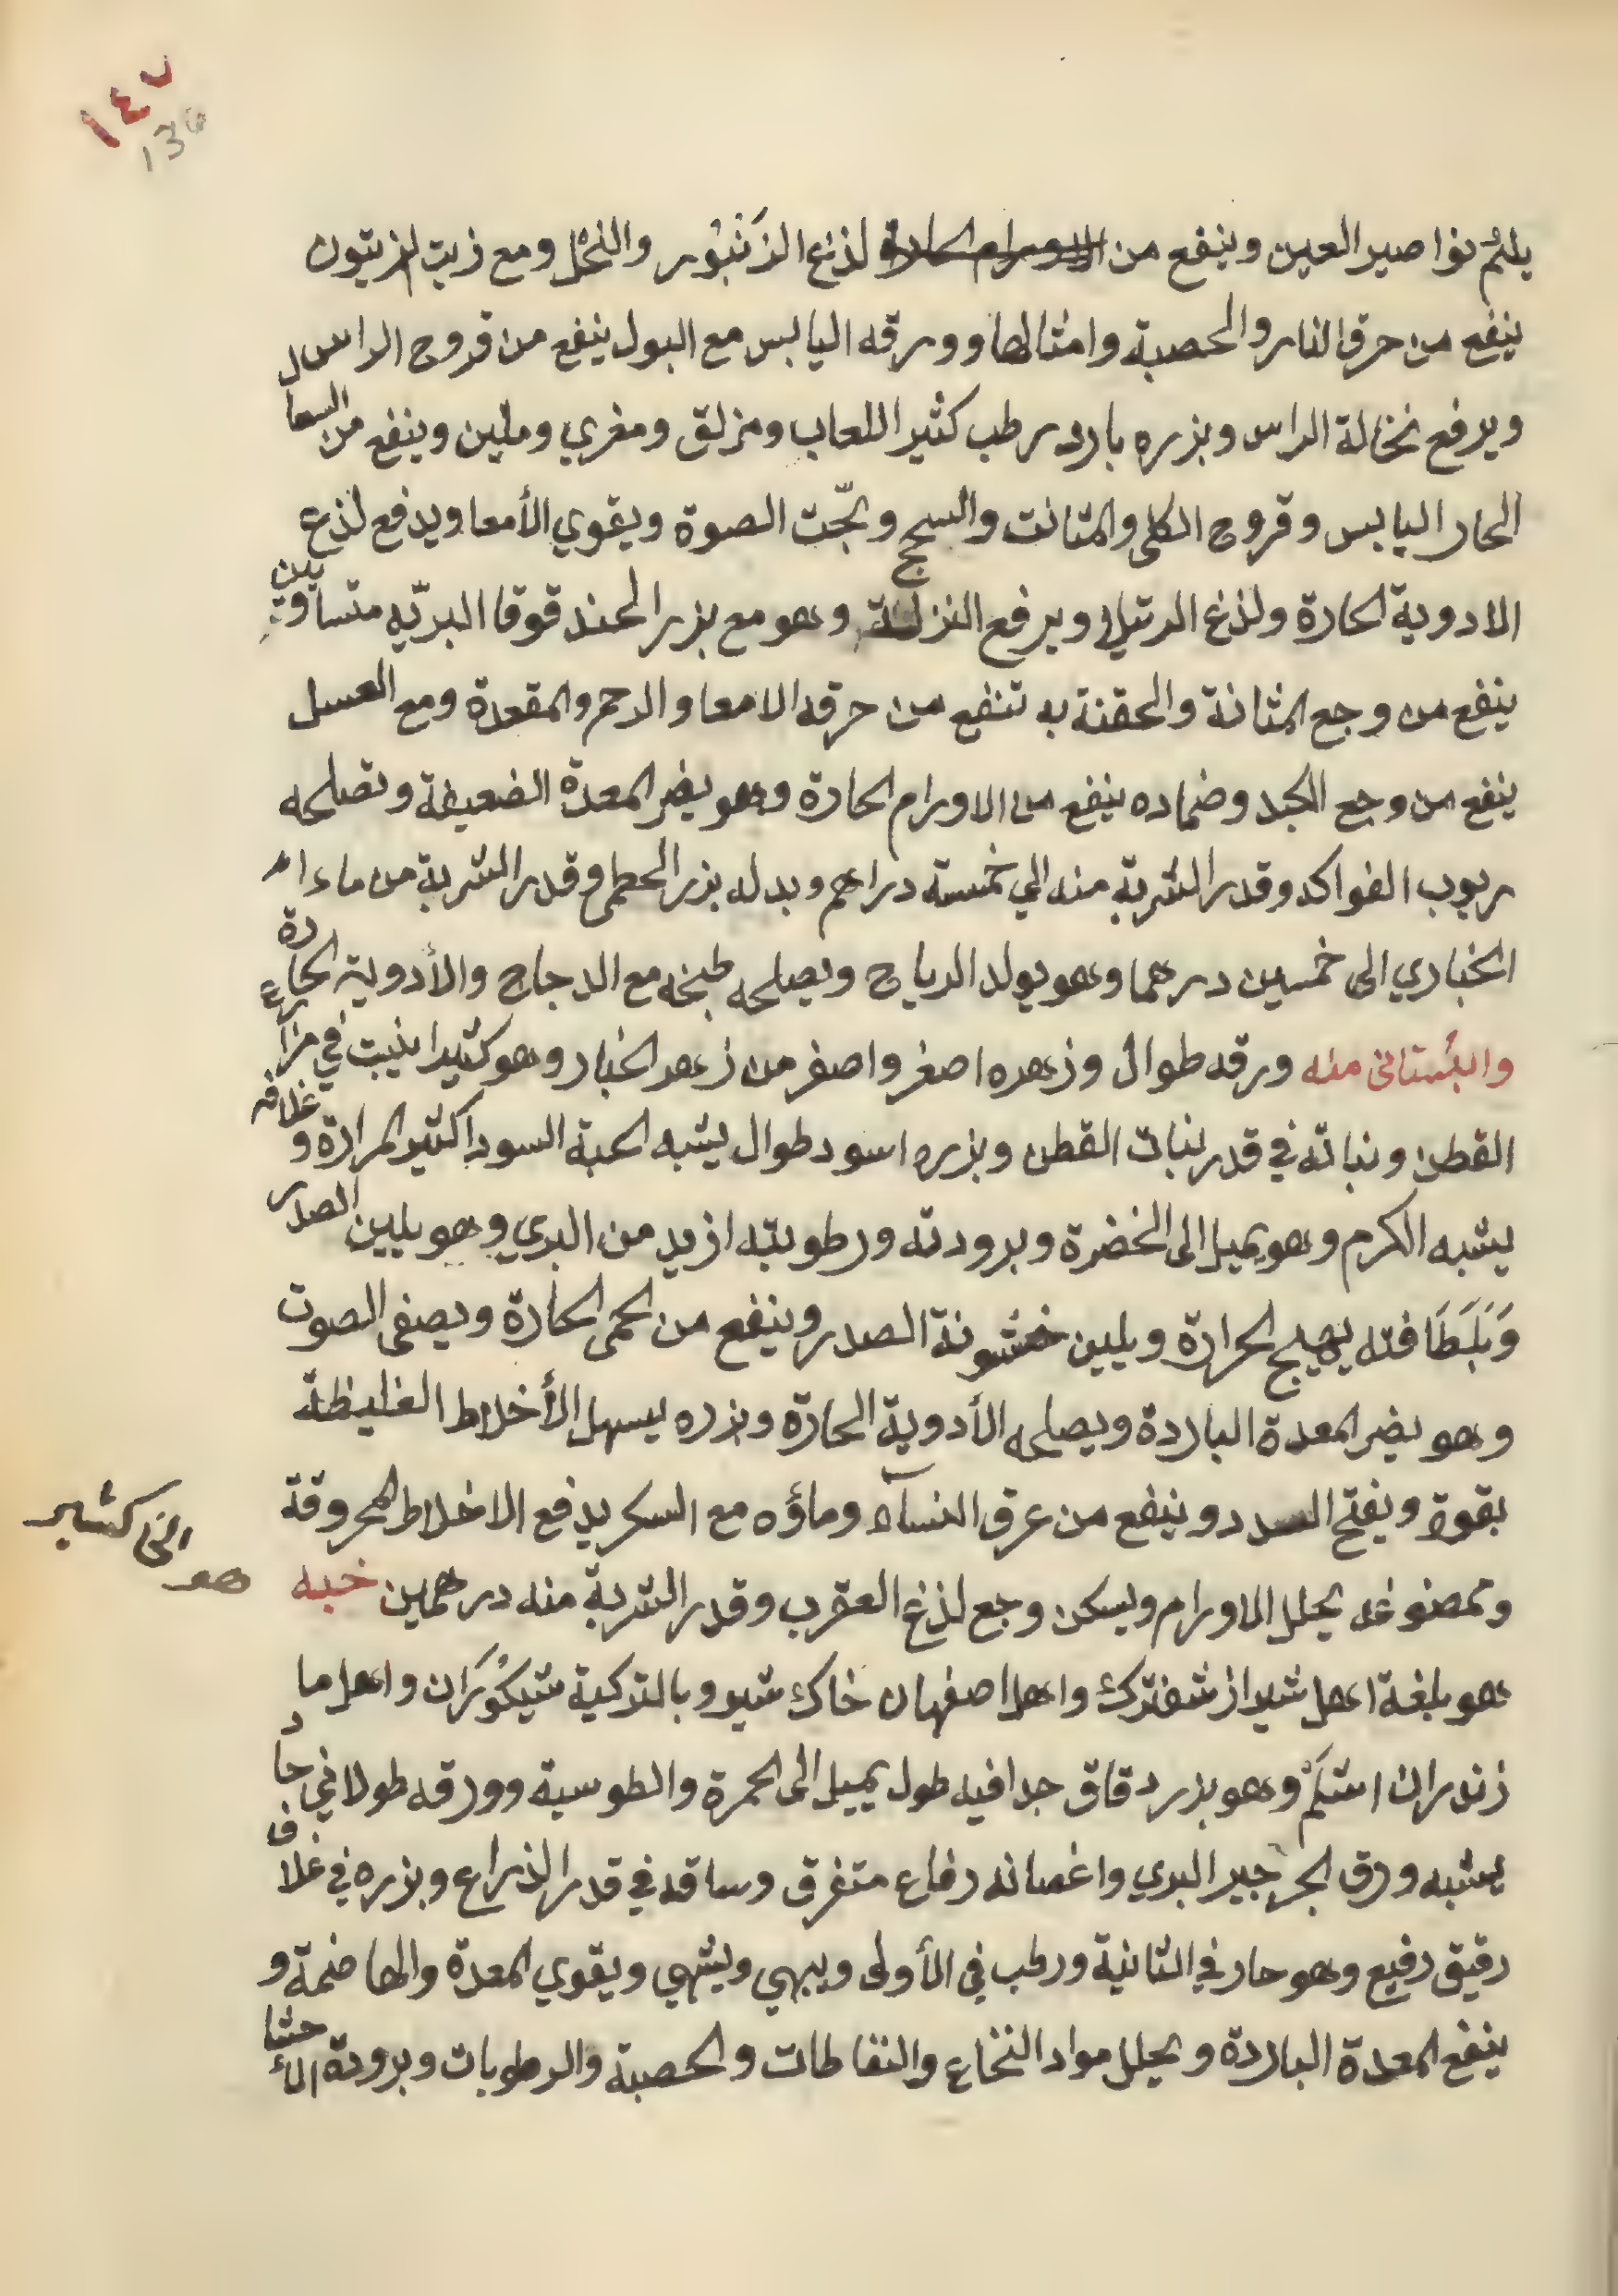 ١٤٧
136
يلئم نواصير العين وينفع من الاورام الحادة لذع الزَنْبُور والنحل ومع زيت الزيتون
ينفع من حرق النار والحصبة وامثالها وورقه اليابس مع البول ينفع من قروح الراس
ويرفع نخالة الراس وبزره بارد رطب كثير اللعاب ومزلق ومغري وملين وينفع من السعال
الحار اليابس وقروح الكلى والمثانت والسحج وبحّت الصوة ويقوي الأمعا ويدفع لذع
الادوية الحارة ولذغ الرتيلا ويرفع النزلة وهو مع بزر الحندقوقا البريّه متساويين
ينفع من وجع المثانة والحقنة به تنفع من حرقه الامعا والرحم والمقعدة ومع العسل
ينفع من وجع الكبد وضماده ينفع من الاورام الحارة وهو يضر المعدة الضعيفة وتصلحه
ربوب الفواكه وقدر الشربة منه الي خمسة دراهم وبدله بزر الخطمي وقدر الشربة من ماء
الخبازي الى خمسين درهما وهو يولد الرياح ويصلحه طبخه مع الدجاج والأدوية الحارة
والبُستاني منه ورقه طوال وزهره اصغر واصفر من زهر الخباز وهو كثيرا ينبت في مزارع
القطن ونباته في قدر نبات القطن وبزره اسود طوال يشبه الحبة السودا كثير المرارة وغلافه
يشبه الكرم وهو يميل الى الخضرة وبرودته ورطوبته ازيد من البري وهو يلين الصدر
وَبَلَطَافته يهيج الحرارة ويلين خشونة الصدر وينفع من الحمى الحارة ويصفى الصوت
وهو يضر المعدة الباردة ويصلحه الأدوية الحارة وبزره يسهل الأخلاط الغليظة
بقوة ويفتح السدد وينفع من عرق النسآء وماؤه مع السكر يدفع الاخلاط المحروقة
وممضوغه يحلل الاورام ويسكن وجع لذغ العقرب وقدر الشربة منه درهمين خبه
هو بلغة اهل شيراز شفترك واهل اصفهان خاك شير وبالتركية شيكُوَرَان واهل ما
زندران اشلم وهو بزر دقاق جدا فيه طول يميل الى الحمرة والطوسية وورقه طولاني حاد
يشبه ورق الجرجير البري واغصانه رفاع متفرق وساقه في قدر الذراع وبزره في غلاف
رقيق رفيع وهو حار في الثانية ورطب في الأولى ويبهي ويشهي ويقوي المعدة والهاضمة و
ينفع المعدة الباردة ويحلل مواد النخاع والنفاطات والحصبة والرطوبات وبرودة الأحشا
هو